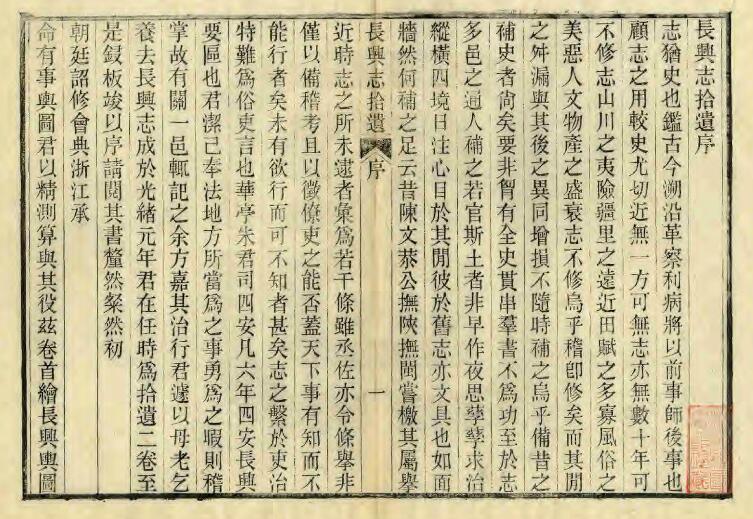 長興志拾遺序
志猶史也鑑古今溯沿革察利病將以前事師後事也
顧志之用較史尤切近無一方可無志亦無數十年可
不修志山川之夷險疆里之遠近田賦之多寡風俗之
美惡人文物產之盛衰志不修烏乎稽卽修矣而其閒
之舛漏與其後之異同增損不隨時補之烏乎備昔之
補史者尚矣要非胷有全史貫串羣書不爲功至於志
多邑之通人補之若官斯土者非早作夜思孳孳求治
縱橫四境日注心目於其閒彼於舊志亦文具也如面
牆然何補之足云昔陳文恭公撫陝撫閩嘗檄其屬舉
長興志拾遺 序 一
近時志之所未逮者彙爲若干條雖丞佐亦令條舉非
僅以備稽考且以徵僚吏之能否蓋天下事有知而不
能行者矣未有欲行而可不知者甚矣志之繫於吏治
特難爲俗吏言也華亭朱君司四安凡六年四安長興
要區也君潔己奉法地方所當爲之事勇爲之暇則稽
掌故有關一邑輒記之余方嘉其治行君遽以母老乞
養去長興志成於光緒元年君在任時爲拾遺二卷至
是鋟板竣以序請閱其書釐然粲然初
朝廷詔修會典浙江承
命有事輿圖君以精測算與其役茲卷首繪長興輿圖